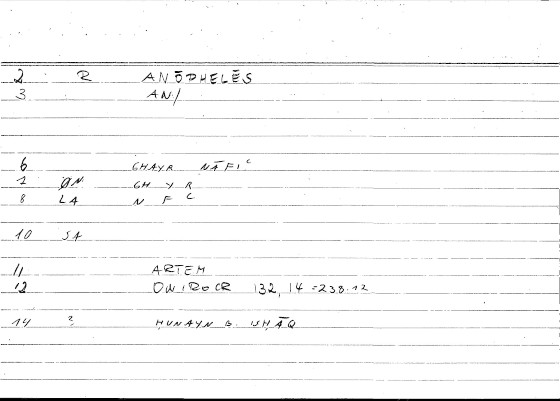 2 R ANŌPHELĒS
3 AN/
6 GHAYR NĀFIʿ
7 ØN GH Y R
8 LA N F ʿ
10 SA
11 ARTEM
12 ONIROCR 132, 14 = 238.12
14 ? ḤUNAYN B. ISḤĀQ